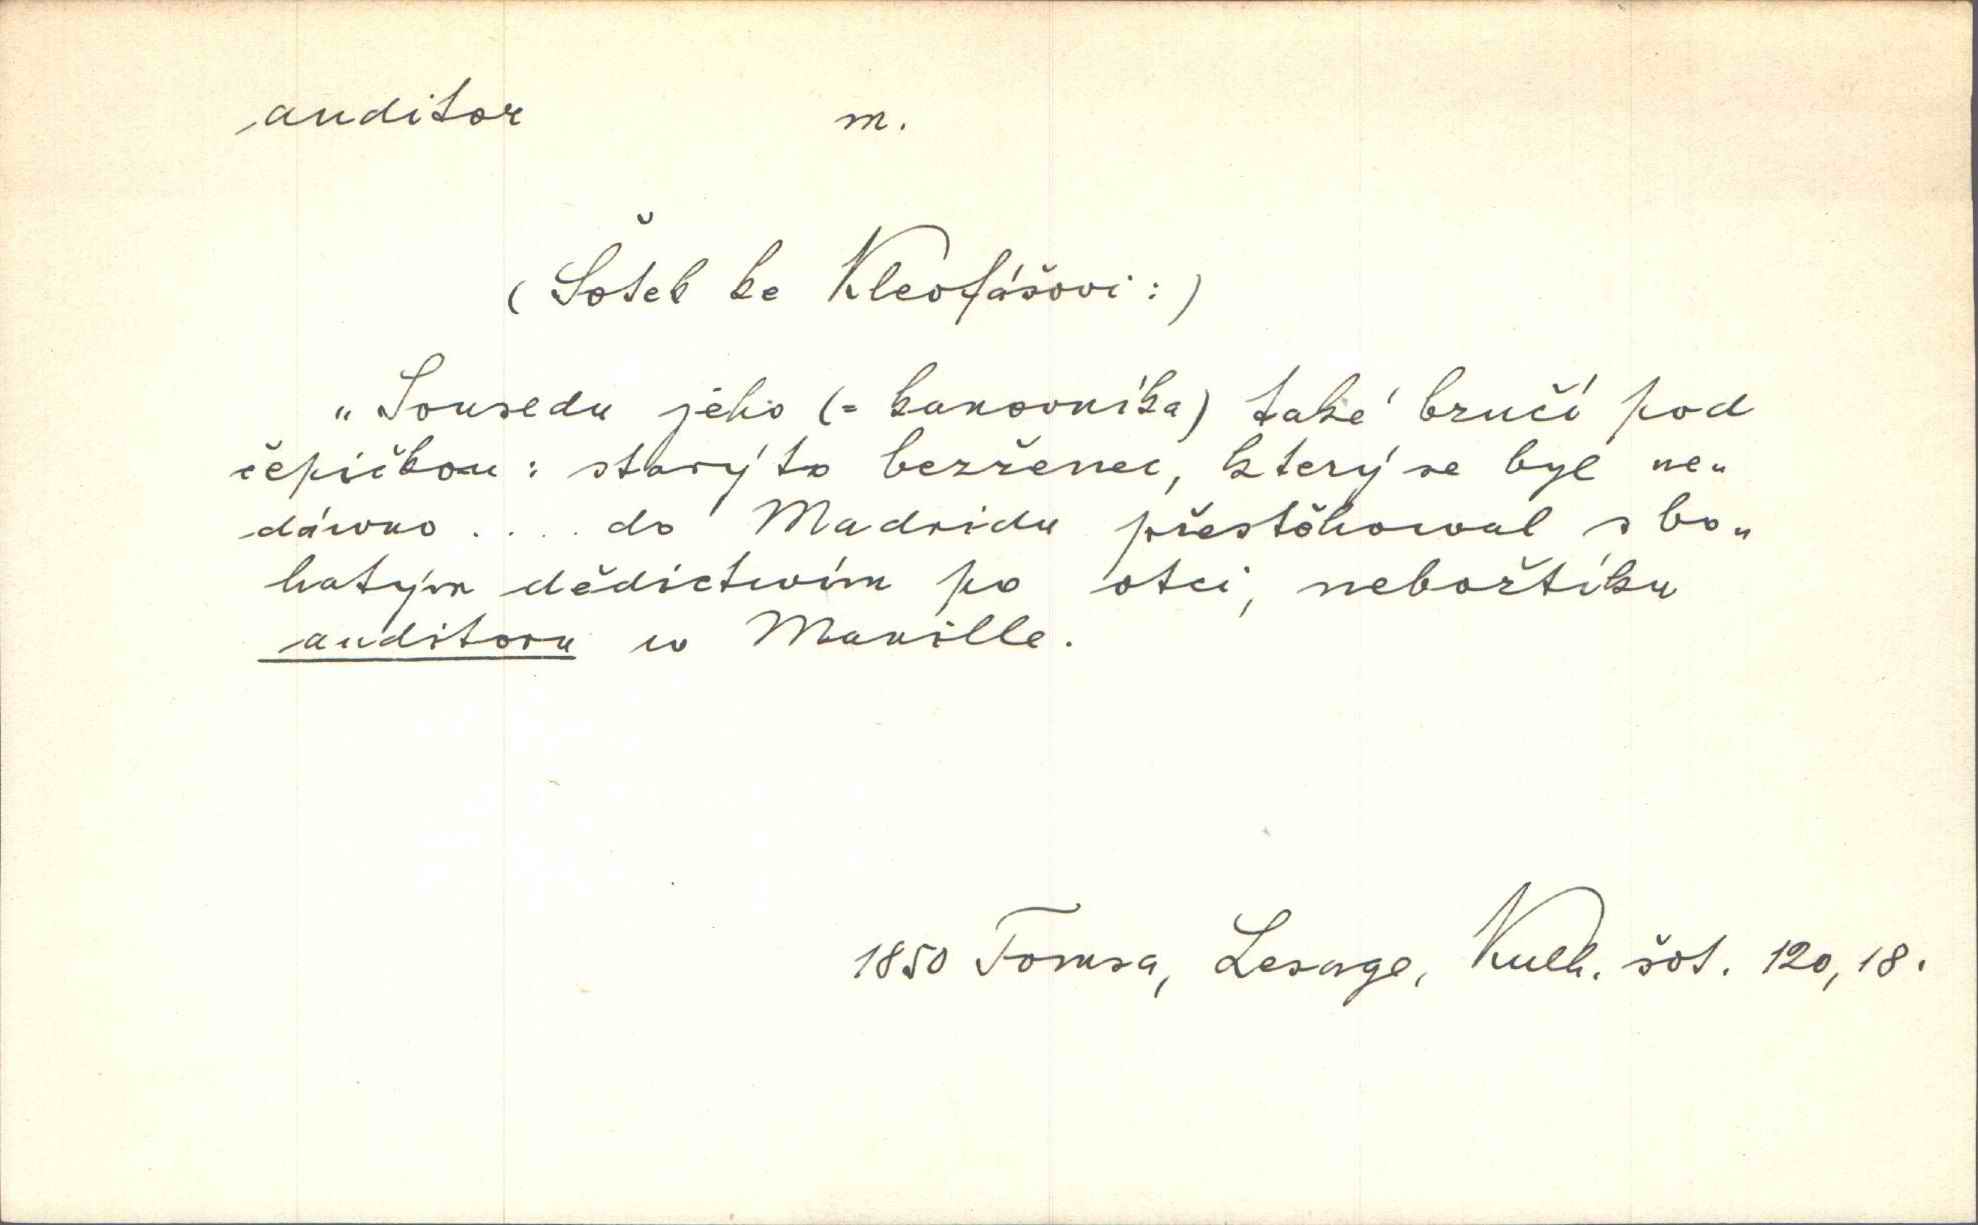 auditor m.
(Šotek ke Kleofášovi:)
„Sousedu jeho (= kanovníka) také bručí pod
čepičkou: starý to bezženec, který se byl ne„
dáwno .... do Madridu přestěhowal s bo„
hatým dědictwím po otci, nebožtíku
auditoru w Manille.
1850 Tomsa, Lesage, Kulh. šot. 120, 18.